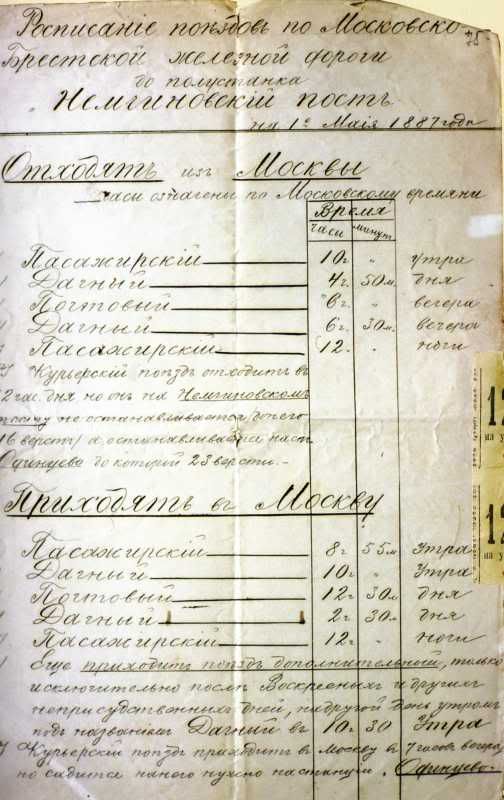 Росписаніе поѣздовъ по Московско-
Брестской желѣзной дороги
до полустанка
Немгиновскій постъ
на 1е Маія 1887 года
Отходятъ изъ Москвы
часы означены по Московскому времяни
Время
часы минут
Пасажирскій 10 ч. " утра
Дачный 4 ч. 50 м. дня
Почтовый 6 ч. " вечера
Дачный 6 ч. 30 м. вечера
Пасажирскій 12. " ночи
Курьерскій поѣздъ отходитъ въ
2 час. дня но онъ на Немгиновскомъ
посту не останавливается
16 верстъ, а останавливается на ст.
Одинцово до которой 23 версты.-
Приходятъ въ Москву
Пасажирскій 8 ч 55 м Утра
Дачный 10 ч. " Утра
Почтовый 12 ч 30 м дня
Дачный 2 ч 30 м. дня
Пасажирскій 12 ч. " ночи
Еще приходитъ поѣздъ дополнительной, только
исключительно послѣ Воскресныхъ и другихъ
неприсудственныхъ дней, на другой день утромъ
подъ названіемъ Дачный въ 10 ч 30 Утра
Курьерскій поѣздъ приходитъ въ Москву в 7 часовъ вечера,
но садится на него нужно на станціи. Одинцово.
12
на у
12
на у